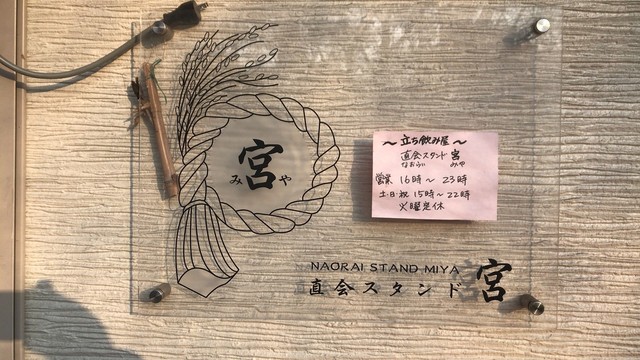 宮
みや
NAORAI STAND MIYA
直会スタンド 宮
～立ち飲み屋～
直会スタンド 宮
なおらい みや
営業 16時～23時
土・日・祝 15時～22時
火曜定休